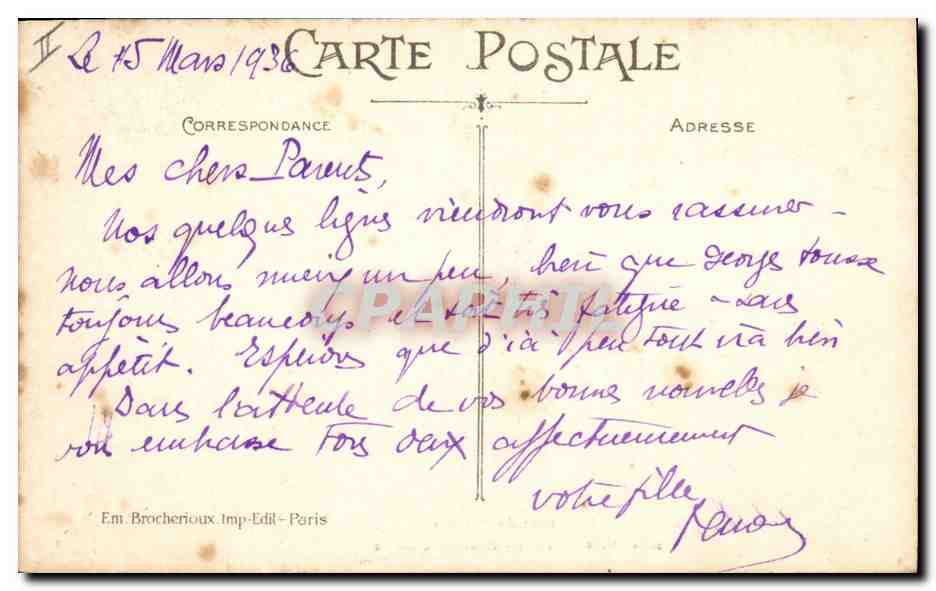 II
Le 15 Mars 1936
CARTE POSTALE
CORRESPONDANCE
ADRESSE
Mes chers Parents,
Nos quelques lignes viendront vous rassurer -
nous allons mieux un peu, bien que Georges tousse
toujours beaucoup et soit très fatigué - sans
appétit. Espérons que d'ici peu tout ira bien
Dans l'attente de vos bonnes nouvelles je
vous embrasse tous deux affectueusement
votre fille
CPAPHIL
Em. Brocherioux. Imp-Edit - Paris